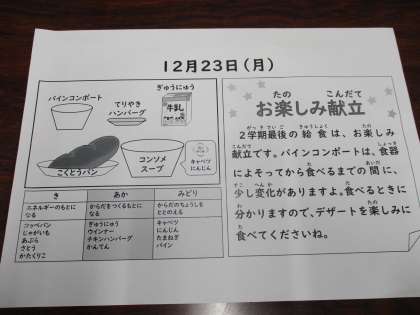 12月23日(月)
ぎゅうにゅう
パインコンポート
てりやき
ハンバーグ
牛乳
コンソメ
スープ
キャベツ
にんじん
こくとうパン
き
あか
みどり
エネルギーのもとに
なる
からだをつくるもとに
なる
からだのちょうしを
ととのえる
コッペパン
じゃがいも
あぶら
さとう
かたくりこ
ぎゅうにゅう
ウインナー
チキンハンバーグ
かんてん
キャベツ
にんじん
たまねぎ
パイン
お楽しみ献立
2学期最後の給食は、お楽しみ
献立です。パインコンポートは、食器
によそってから食べるまでの間に、
少し変化がありますよ。食べるときに
分かりますので、デザートを楽しみに
食べてくださいね。